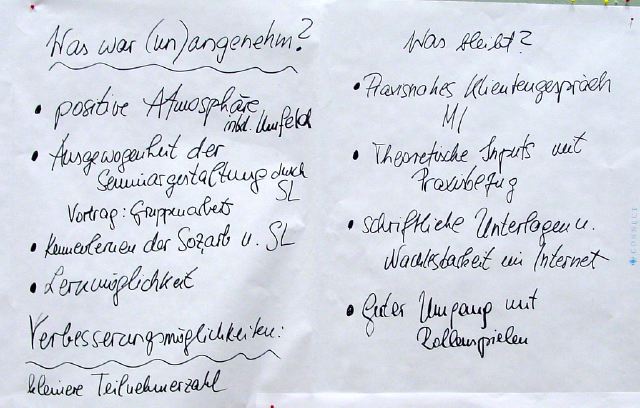 Was war (un)angenehm?
• positive Atmosphäre
inkl. Umfeld
• Ausgewogenheit der
Seminargestaltung durch
SL
Vortrag: Gruppenarbeit
• Kennenlernen der Sozarb u. SL
• Lernmöglichkeit
Verbesserungsmöglichkeiten:
kleinere Teilnehmerzahl
Was bleibt?
• Praxisnahes Klientengespräch
MI
• Theoretische Inputs mit
Praxisbezug
• schriftliche Unterlagen u.
Nachlesbarkeit im Internet
• Guter Umgang mit
Rollenspielen